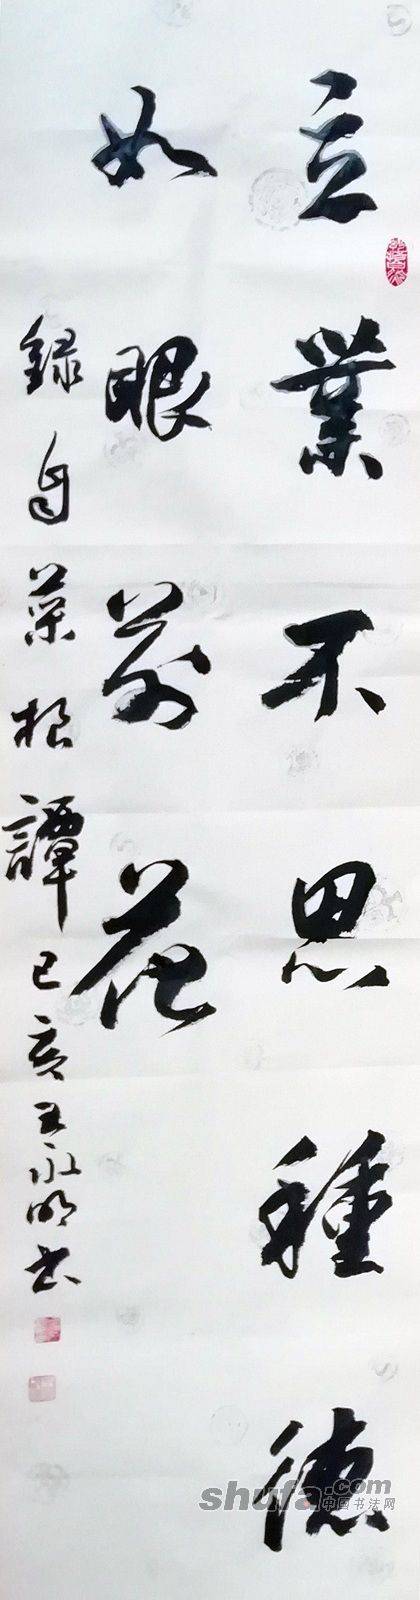 立業不思種德
如眼前花
録自菜根譚己亥王永明书
shufa.com
中国书法网